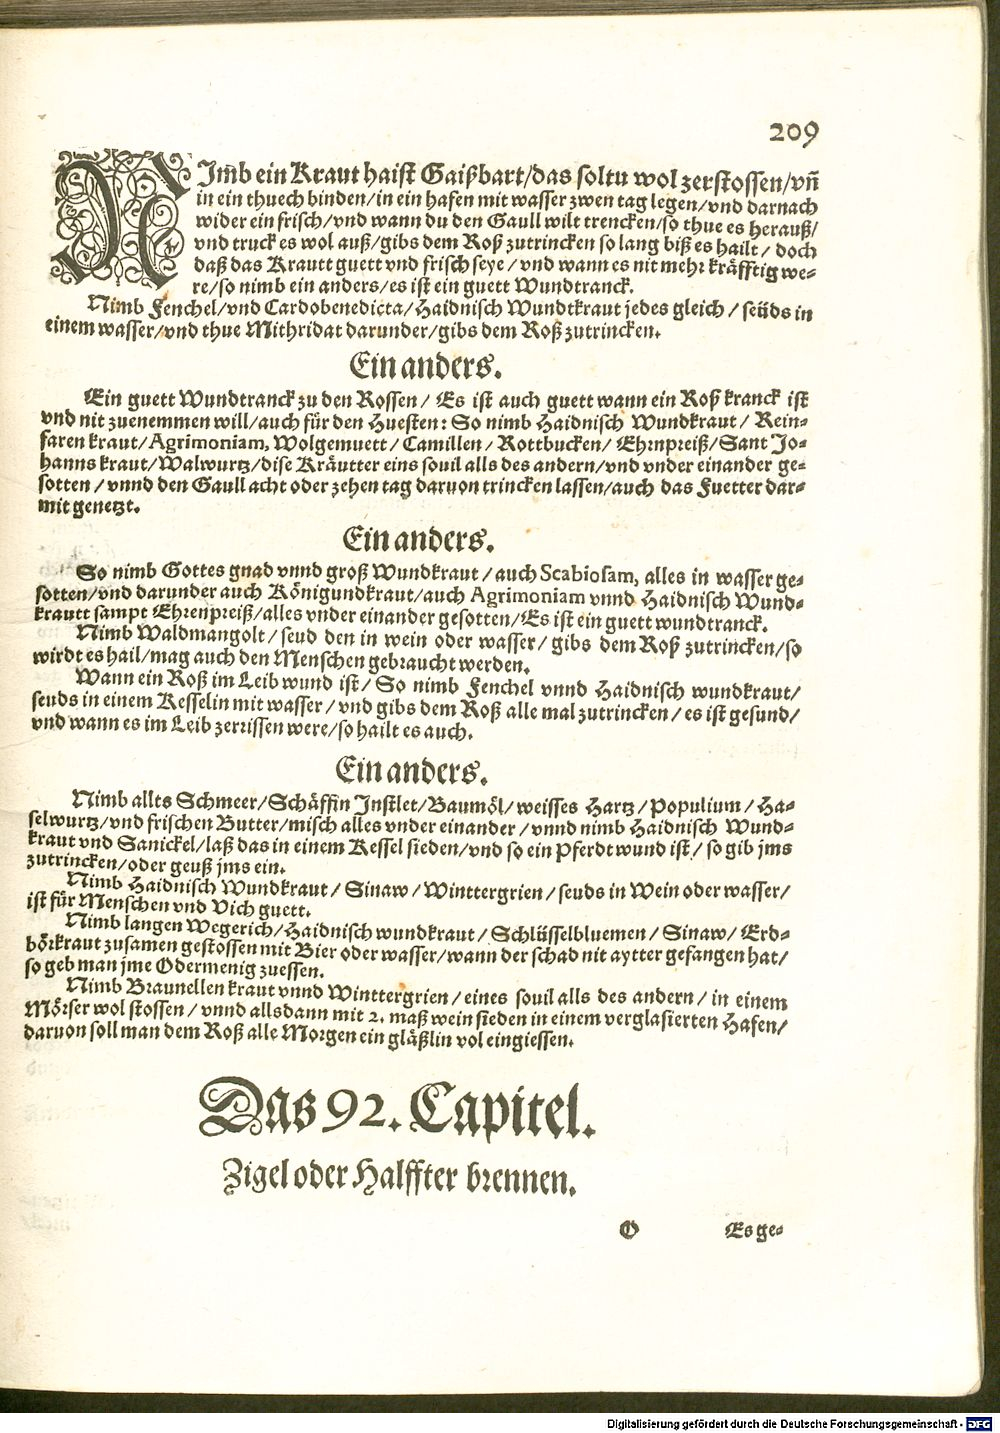 209
NImb ein Kraut haist Gaißbart/das soltu wol zerstossen/vñ
in ein thuech binden/in ein hafen mit wasser zwen tag legen/vnd darnach
wider ein frisch/vnd wann du den Gaull wilt trencken/so thue es herauß/
vnd truck es wol auß/gibs dem Roß zutrincken so lang biß es hailt/ doch
daß das Krautt guett vnd frisch seye/ vnd wann es nit mehr kräfftig we-
re/so nimb ein anders/es ist ein guett Wundtranck.
Nimb Fenchel/vnd Cardobenedicta/Haidnisch Wundtkraut jedes gleich/ seüds in
einem wasser/vnd thue Mithridat darunder/gibs dem Roß zutrincken.
Ein anders.
Ein guett Wundtranck zu den Rossen/ Es ist auch guett wann ein Roß kranck ist
vnd nit zuenemmen will/auch für den Huesten: So nimb Haidnisch Wundkraut/ Rein-
faren kraut/Agrimoniam, Wolgemuett/ Camillen/ Rottbucken/ Ehrnpreiß/Sant Jo-
hanns kraut/Walwurtz/dise Kräutter eins souil alls des andern/vnd vnder einander ge-
sotten/vnnd den Gaull acht oder zehen tag daruon trincken lassen/auch das Fuetter dar-
mit genetzt.
Ein anders.
So nimb Gottes gnad vnnd groß Wundkraut/auch Scabiosam, alles in wasser ge-
sotten/vnd darunder auch Königundkraut/auch Agrimoniam vnnd Haidnisch Wund-
krautt sampt Ehrenpreiß/alles vnder einander gesotten/Es ist ein guett wundtranck.
Nimb Waldmangolt/ seud den in wein oder wasser/ gibs dem Roß zutrincken/so
wirdt es hail/mag auch den Menschen gebraucht werden.
Wann ein Roß im Leib wund ist/ So nimb Fenchel vnnd Haidnisch wundkraut/
seuds in einem Kesselin mit wasser/ vnd gibs dem Roß alle mal zutrincken/ es ist gesund/
vnd wann es im Leib zerrissen were/so hailt es auch.
Ein anders.
Nimb allts Schmeer/Schäffin Jnstlet/Baumöl/weisses Hartz/Populium/ Ha-
selwurtz/vnd frischen Butter/misch alles vnder einander/vnnd nimb Haidnisch Wund-
kraut vnd Sanickel/laß das in einem Kessel sieden/vnd so ein Pferdt wund ist/ so gib jms
zutrincken/oder geuß jms ein.
Nimb Haidnisch Wundkraut/ Sinaw/Winttergrien/seuds in Wein oder wasser/
ist für Menschen vnd Vich guett.
Nimb langen Wegerich/Haidnisch wundkraut/ Schlüsselbluemen/ Sinaw/ Erd-
börkraut zusamen gestossen mit Bier oder wasser/wann der schad nit aytter gefangen hat/
so geb man jme Odermenig zuessen.
Nimb Braunellen kraut vnnd Winttergrien/eines souil alls des andern/ in einem
Mörser wol stossen/ vnnd allsdann mit 2. maß wein sieden in einem verglasierten Hafen/
daruon soll man dem Roß alle Morgen ein gläßlin vol eingiessen.
Das 92. Capitel.
Zigel oder Halffter brennen.
O Es ge-
Digitalisierung gefördert durch die Deutsche Forschungsgemeinschaft - DFG